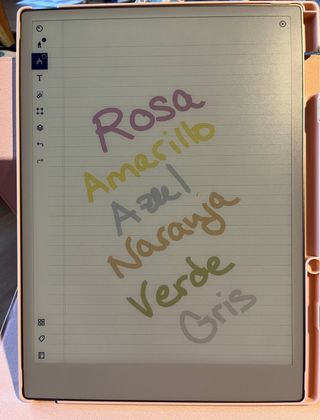 Rosa
Amarillo
Azul
Naranja
Verde
Gris